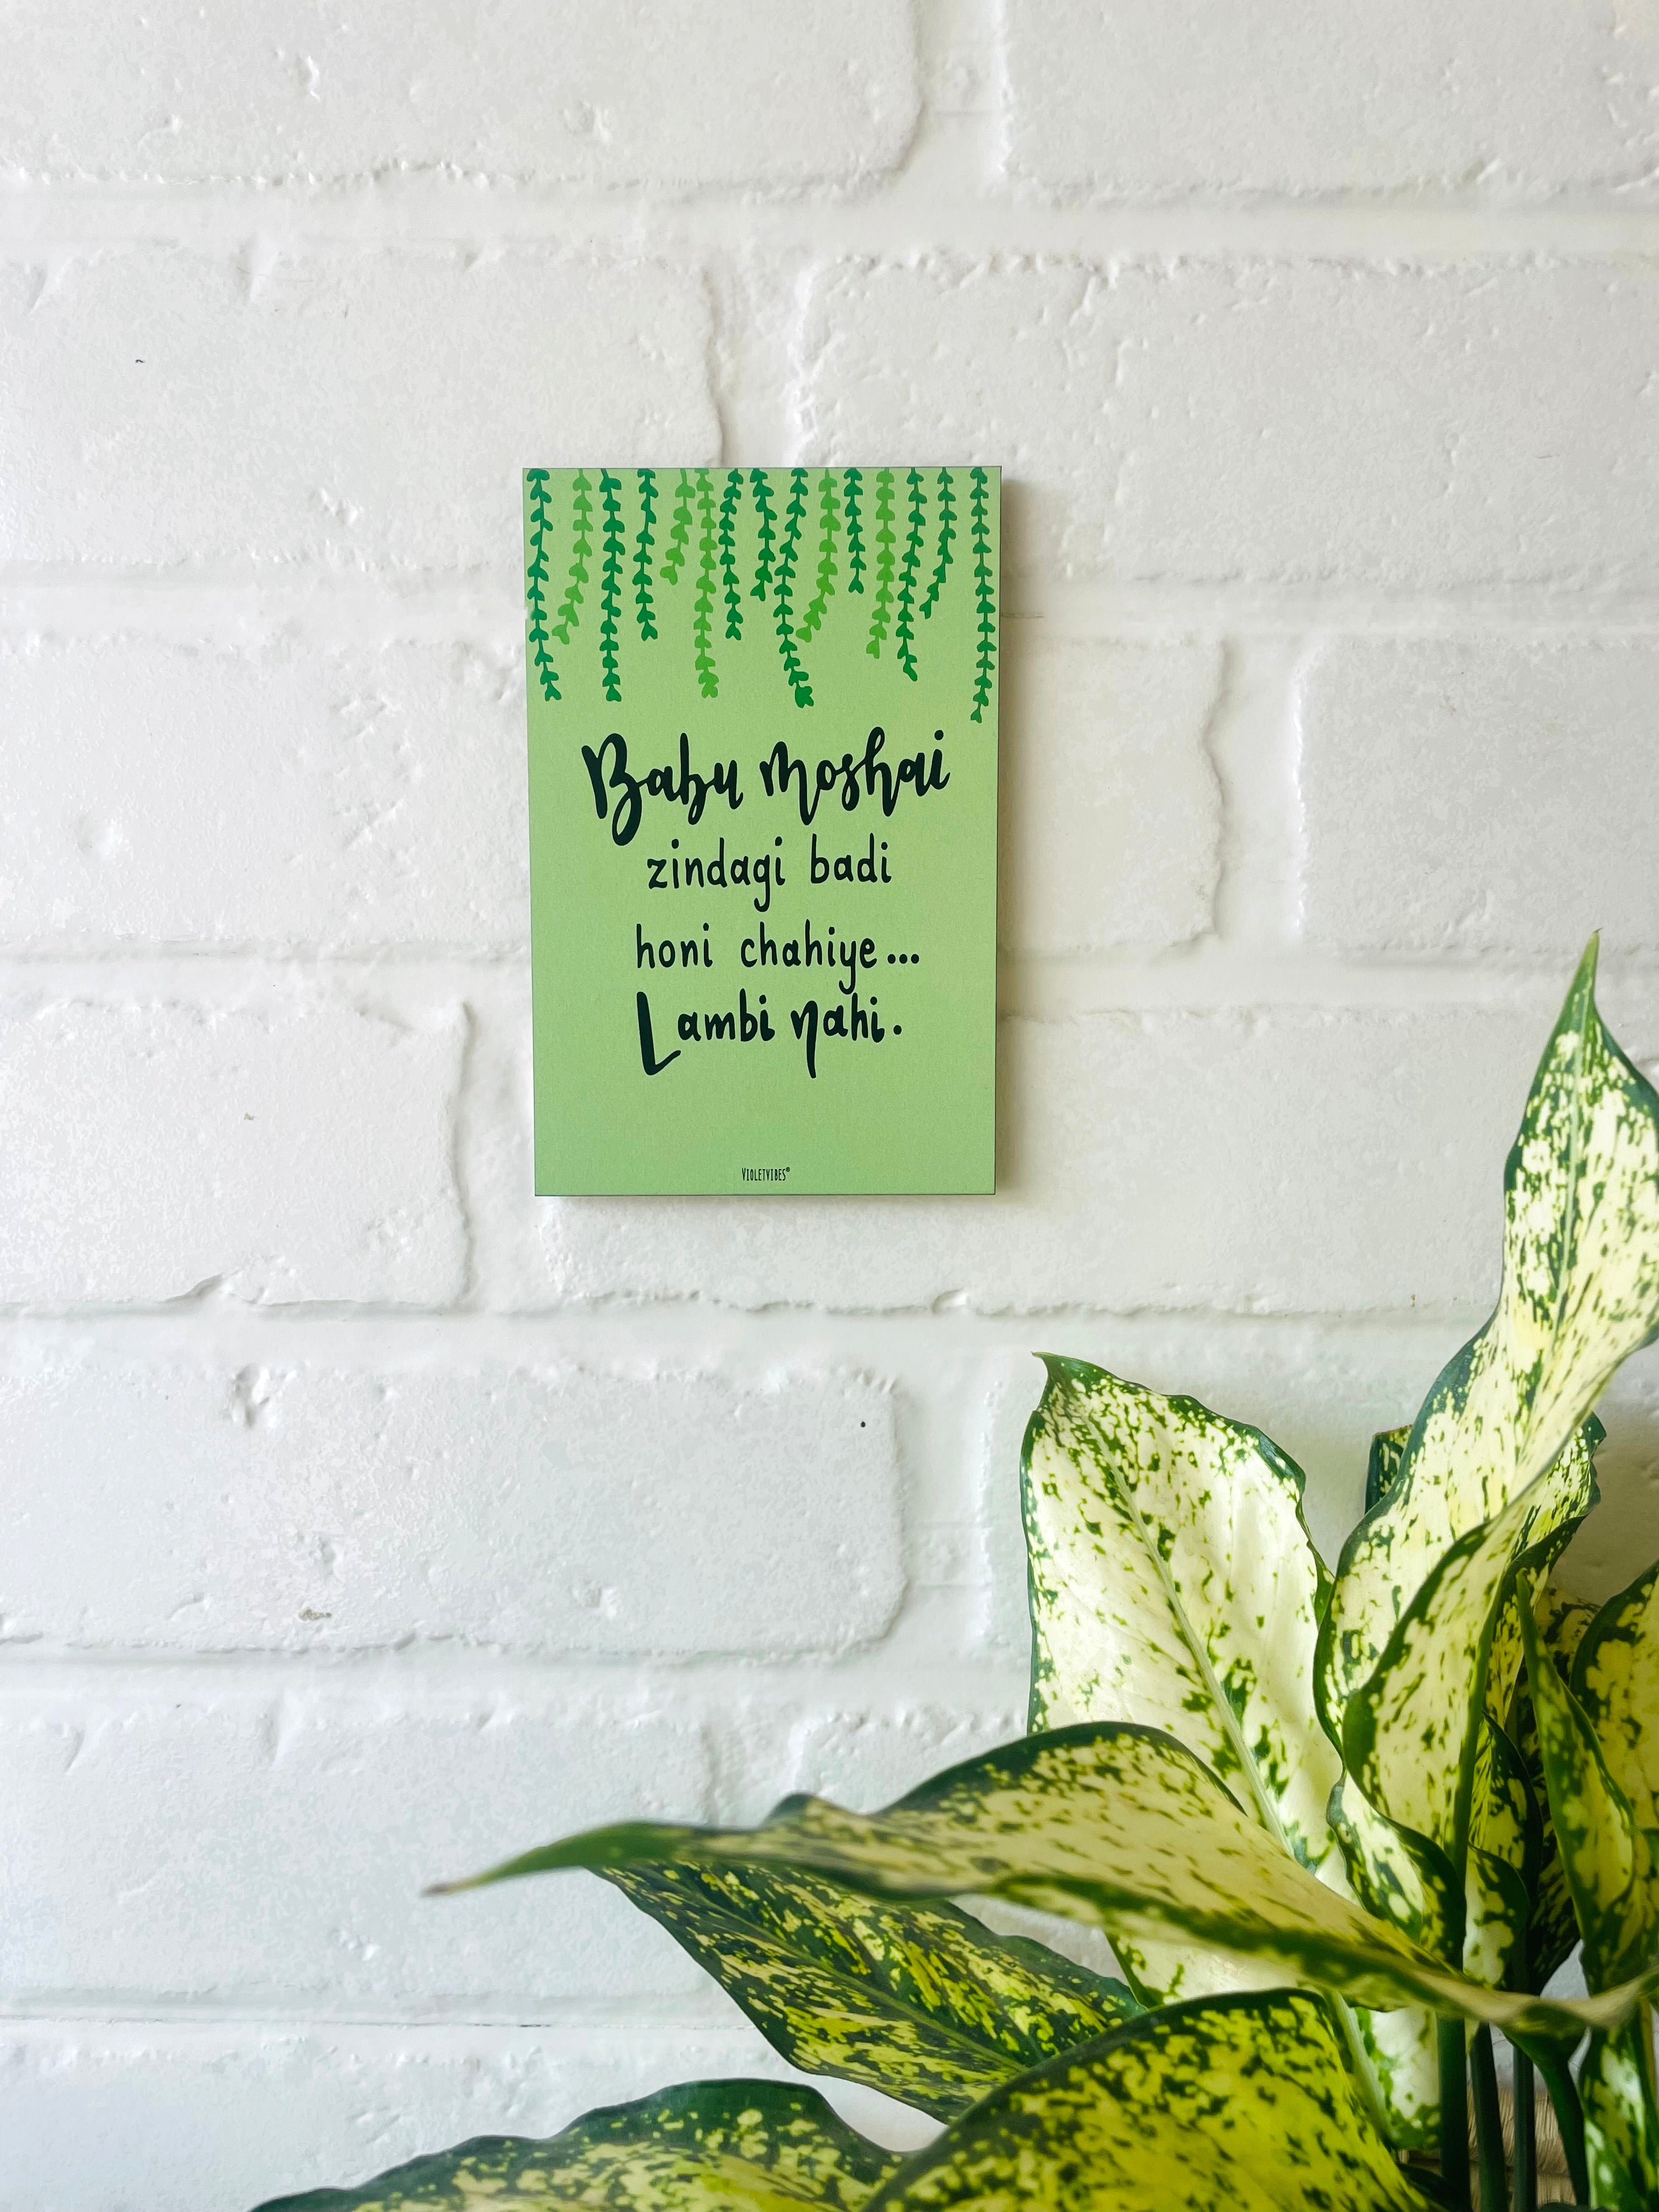 Babu moshai
zindagi badi
honi chahiye...
Lambi nahi.
VIOLETVIBES®